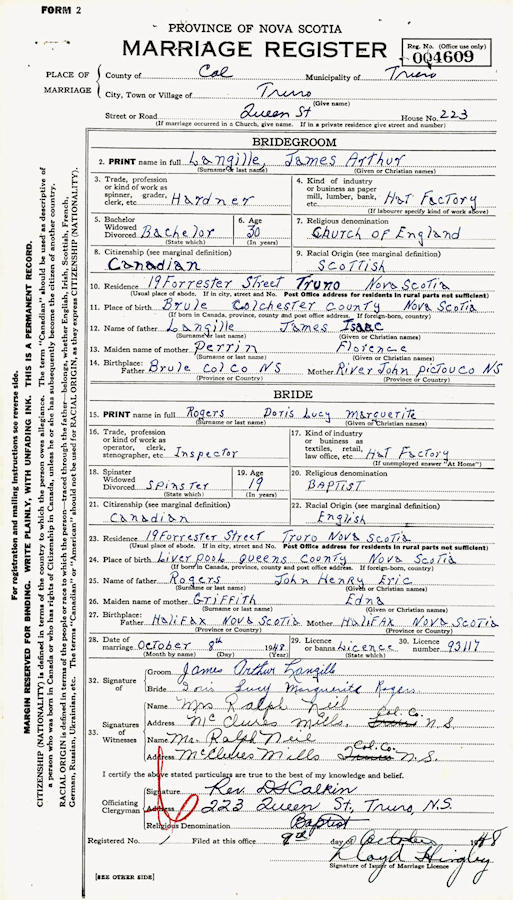 FORM 2
PROVINCE OF NOVA SCOTIA
MARRIAGE REGISTER
Reg. No. (Office use only)
004609
PLACE OF MARRIAGE
County of Col Municipality of Truro
City, Town or Village of Truro
(Give name)
Street or Road Queen St House No. 223
(If marriage occurred in a Church, give name. If in a private residence give street and number)
BRIDEGROOM
2. PRINT name in full Langille, James Arthur
(Surname or last name) (Given or Christian names)
3. Trade, profession or kind of work as spinner, grader, clerk, etc. Hardner
4. Kind of industry or business as paper mill, lumber, bank, etc. Hat Factory
(If labourer specify kind of work above)
5. Bachelor Widowed Divorced Bachelor
(State which)
6. Age 30
(In years)
7. Religious denomination
Church of England
8. Citizenship (see marginal definition)
Canadian
9. Racial Origin (see marginal definition)
Scottish
10. Residence 19 Forrester Street Truro Nova Scotia
(Usual place of abode. If in city, street and No. Post Office address for residents in rural parts not sufficient)
11. Place of birth Brule Colchester County Nova Scotia
(If born in Canada, province, county and post office address. If foreign-born, country)
12. Name of father Langille James Isaac
(Surname or last name) (Given or Christian names)
13. Maiden name of mother Perrin Florence
(Surname or last name) (Given or Christian names)
14. Birthplace: Father Brule Col Co NS Mother River John Pictou Co NS
(Province or Country) (Province or Country)
BRIDE
15. PRINT name in full Rogers Doris Lucy Marguerite
(Surname or last name) (Given or Christian names)
16. Trade, profession or kind of work as operator, clerk, stenographer, etc. Inspector
17. Kind of industry or business as textiles, retail, law office, etc. Hat Factory
(If unemployed answer "At Home")
18. Spinster Widowed Divorced Spinster
(State which)
19. Age 19
(In years)
20. Religious denomination
Baptist
21. Citizenship (see marginal definition)
Canadian
22. Racial Origin (see marginal definition)
English
23. Residence 19 Forrester Street Truro Nova Scotia
(Usual place of abode. If in city, street and No. Post Office address for residents in rural parts not sufficient)
24. Place of birth Liverpool Queens County Nova Scotia
(If born in Canada, province, county and post office address. If foreign-born, country)
25. Name of father Rogers John Henry Eric
(Surname or last name) (Given or Christian names)
26. Maiden name of mother Griffith Edna
(Surname or last name) (Given or Christian names)
27. Birthplace: Father Halifax Nova Scotia Mother Halifax Nova Scotia
(Province or Country) (Province or Country)
28. Date of marriage October 8th 1948
(Month by name) (Day) (Year)
29. Licence or banns Licence
(State which)
30. Licence number 93117
32. Signature of
Groom James Arthur Langille
Bride Doris Lucy Marguerite Rogers
33. Signatures of Witnesses
Name Mrs Ralph Neil
Address McClures Mills, Truro Col. Co. N.S.
Name Mr. Ralph Neil
Address McClures Mills Truro Col. Co. N.S.
I certify the above stated particulars are true to the best of my knowledge and belief.
Officiating Clergyman
Signature Rev. D S Calkin
Address 223 Queen St, Truro, N.S.
Religious Denomination Baptist
Registered No. Filed at this office 9th day of October 1948
Lloyd Hingley
Signature of Issuer of Marriage Licence
[SEE OTHER SIDE]
For registration and mailing instructions see reverse side.
MARGIN RESERVED FOR BINDING. WRITE PLAINLY, WITH UNFADING INK. THIS IS A PERMANENT RECORD.
CITIZENSHIP (NATIONALITY) is defined in terms of the country to which the person owes allegiance. The term "Canadian" should be used as descriptive of a person who was born in Canada or who has rights of Citizenship in Canada, unless he or she has subsequently become the citizen of another country.
RACIAL ORIGIN is defined in terms of the people or race to which the person—traced through the father—belongs, whether English, Irish, Scottish, French, German, Russian, Ukrainian, etc. The terms "Canadian" or "American" should not be used for RACIAL ORIGIN, as they express CITIZENSHIP (NATIONALITY).